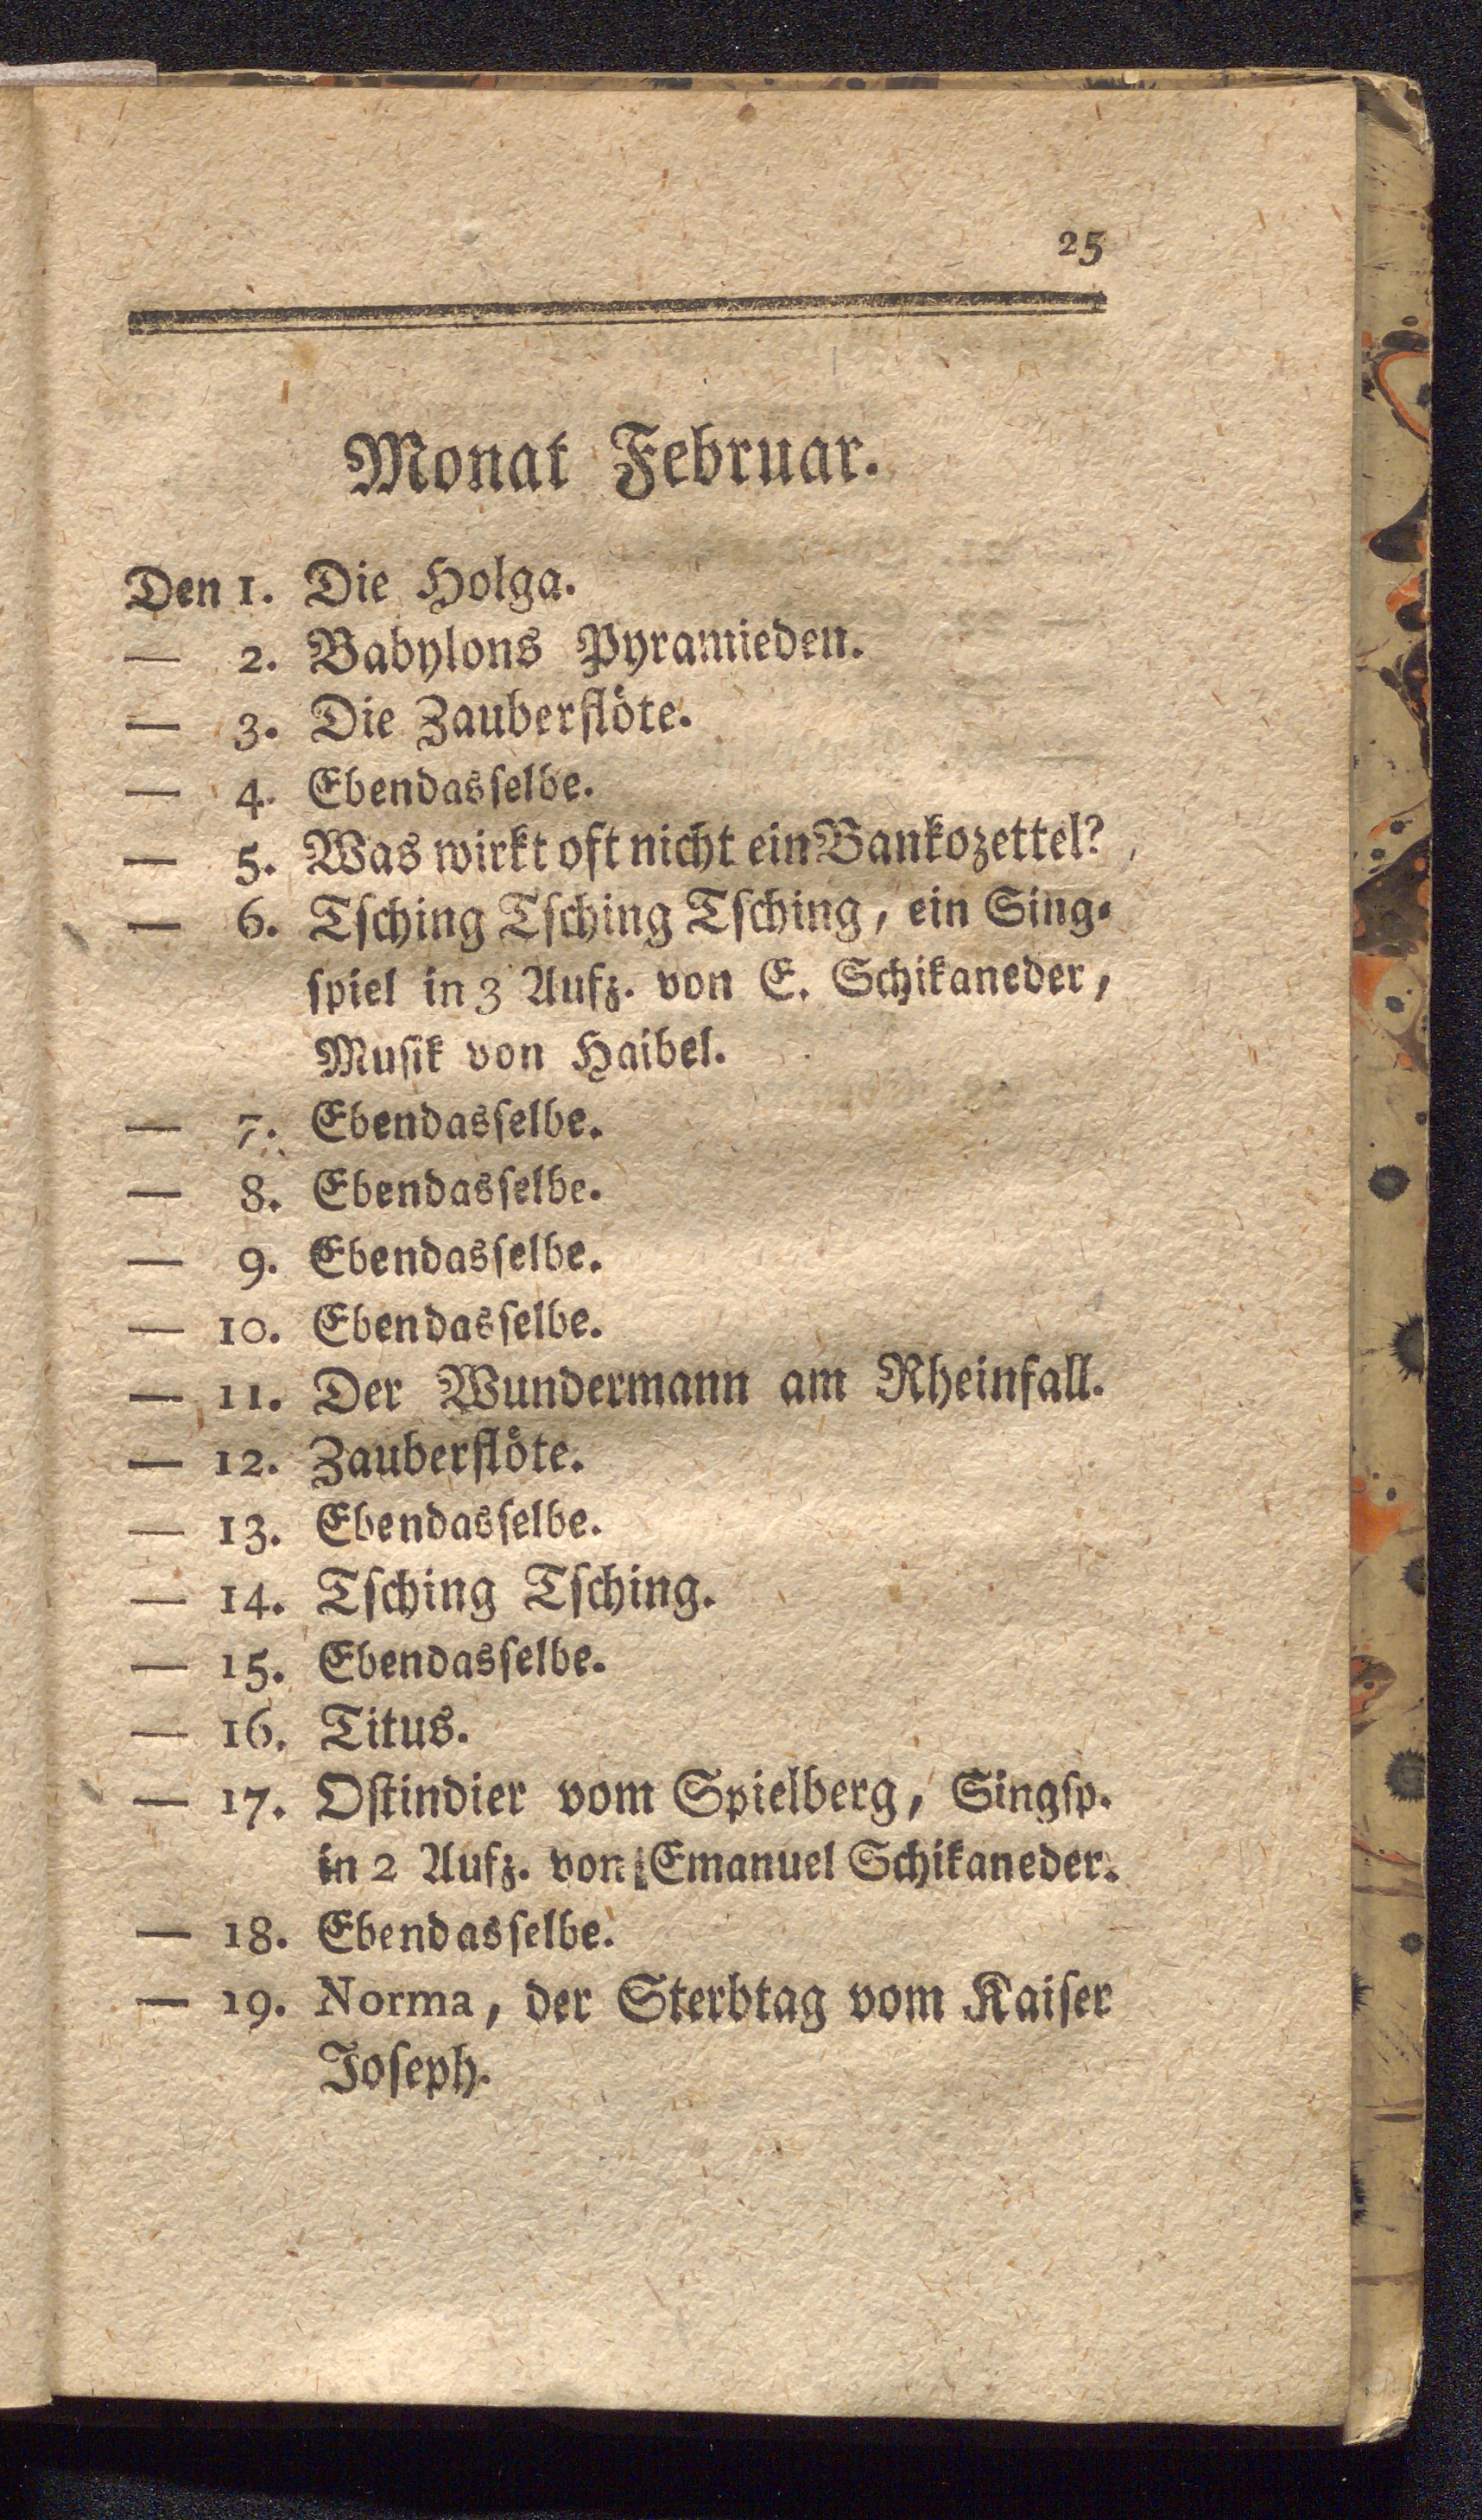 25
Monat Februar.
Den 1. Die Holga.
— 2. Babylons Pyramieden.
— 3. Die Zauberflöte.
— 4. Ebendasſelbe.
— 5. Was wirkt oft nicht ein Bankozettel?
— 6. Tſching Tſching Tſching, ein Sing-
ſpiel in 3 Aufz. von E. Schikaneder,
Muſik von Haibel.
— 7. Ebendasſelbe.
— 8. Ebendasſelbe.
— 9. Ebendasſelbe.
— 10. Ebendasſelbe.
— 11. Der Wundermann am Rheinfall.
— 12. Zauberflöte.
— 13. Ebendasſelbe.
— 14. Tſching Tſching.
— 15. Ebendasſelbe.
— 16. Titus.
— 17. Oſtindier vom Spielberg, Singſp.
in 2 Aufz. von Emanuel Schikaneder.
— 18. Ebendasſelbe.
— 19. Norma, der Sterbtag vom Kaiſer
Joſeph.